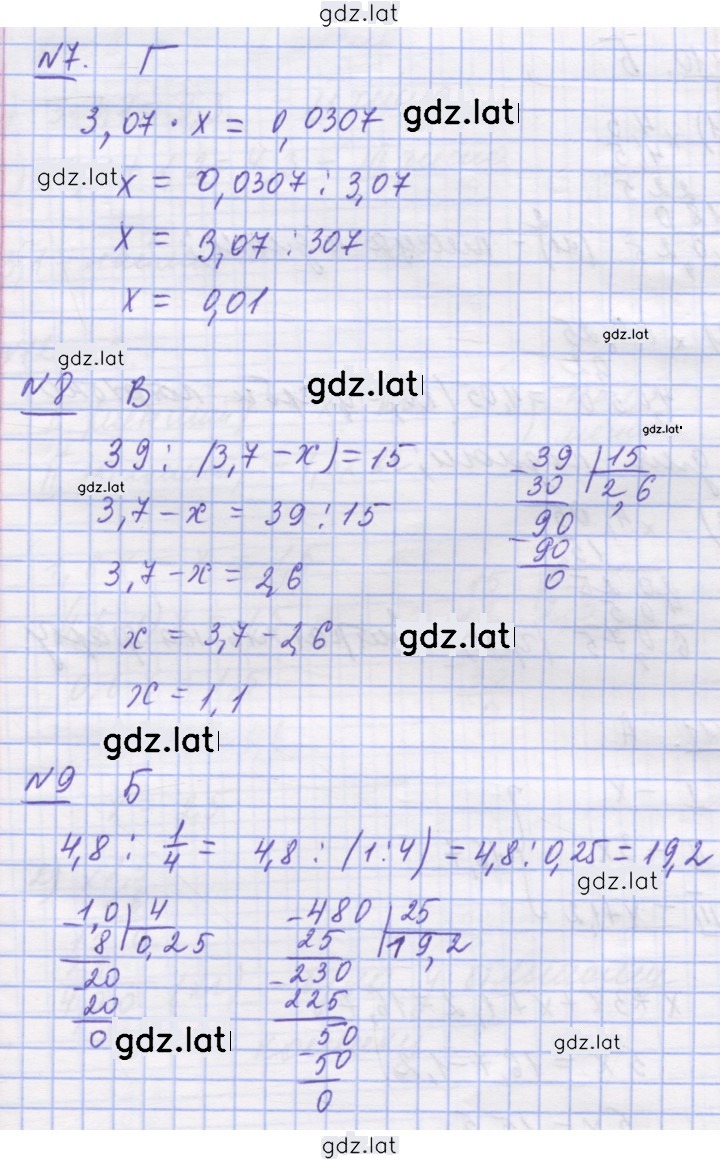 gdz.lat
№7. Г
3,07 · x = 0,0307 gdz.lat
gdz.lat x = 0,0307 : 3,07
x = 3,07 : 307
x = 0,01
gdz.lat
gdz.lat
№8 В gdz.lat
39 : (3,7 - x) = 15
gdz.lat
3,7 - x = 39 : 15
3,7 - x = 2,6
x = 3,7 - 2,6 gdz.lat
x = 1,1
gdz.lat
- 39 | 15
30 | 2,6
- 90
90
0
gdz.lat
№9 Б
4,8 : 1/4 = 4,8 : (1:4) = 4,8 : 0,25 = 19,2
gdz.lat
- 1,0 | 4
8 | 0,25
- 20
20
0
gdz.lat
- 480 | 25
25 | 19,2
- 230
225
- 50
50
0
gdz.lat
gdz.lat